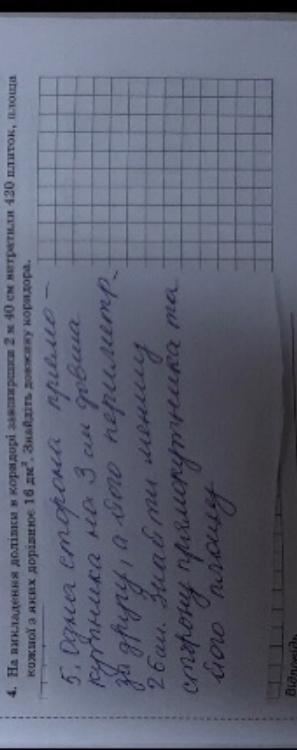 4. На викладення долівки в коридорі завширшки 2 м 40 см витратили 420 плиток, площа
кожної з яких дорівнює 16 дм². Знайдіть довжину коридора.
5. Одна сторона прямо-
кутника на 3 см довша
за другу, а його периметр
26 см. Знайти меншу
сторону прямокутника та
його площу
Відповідь